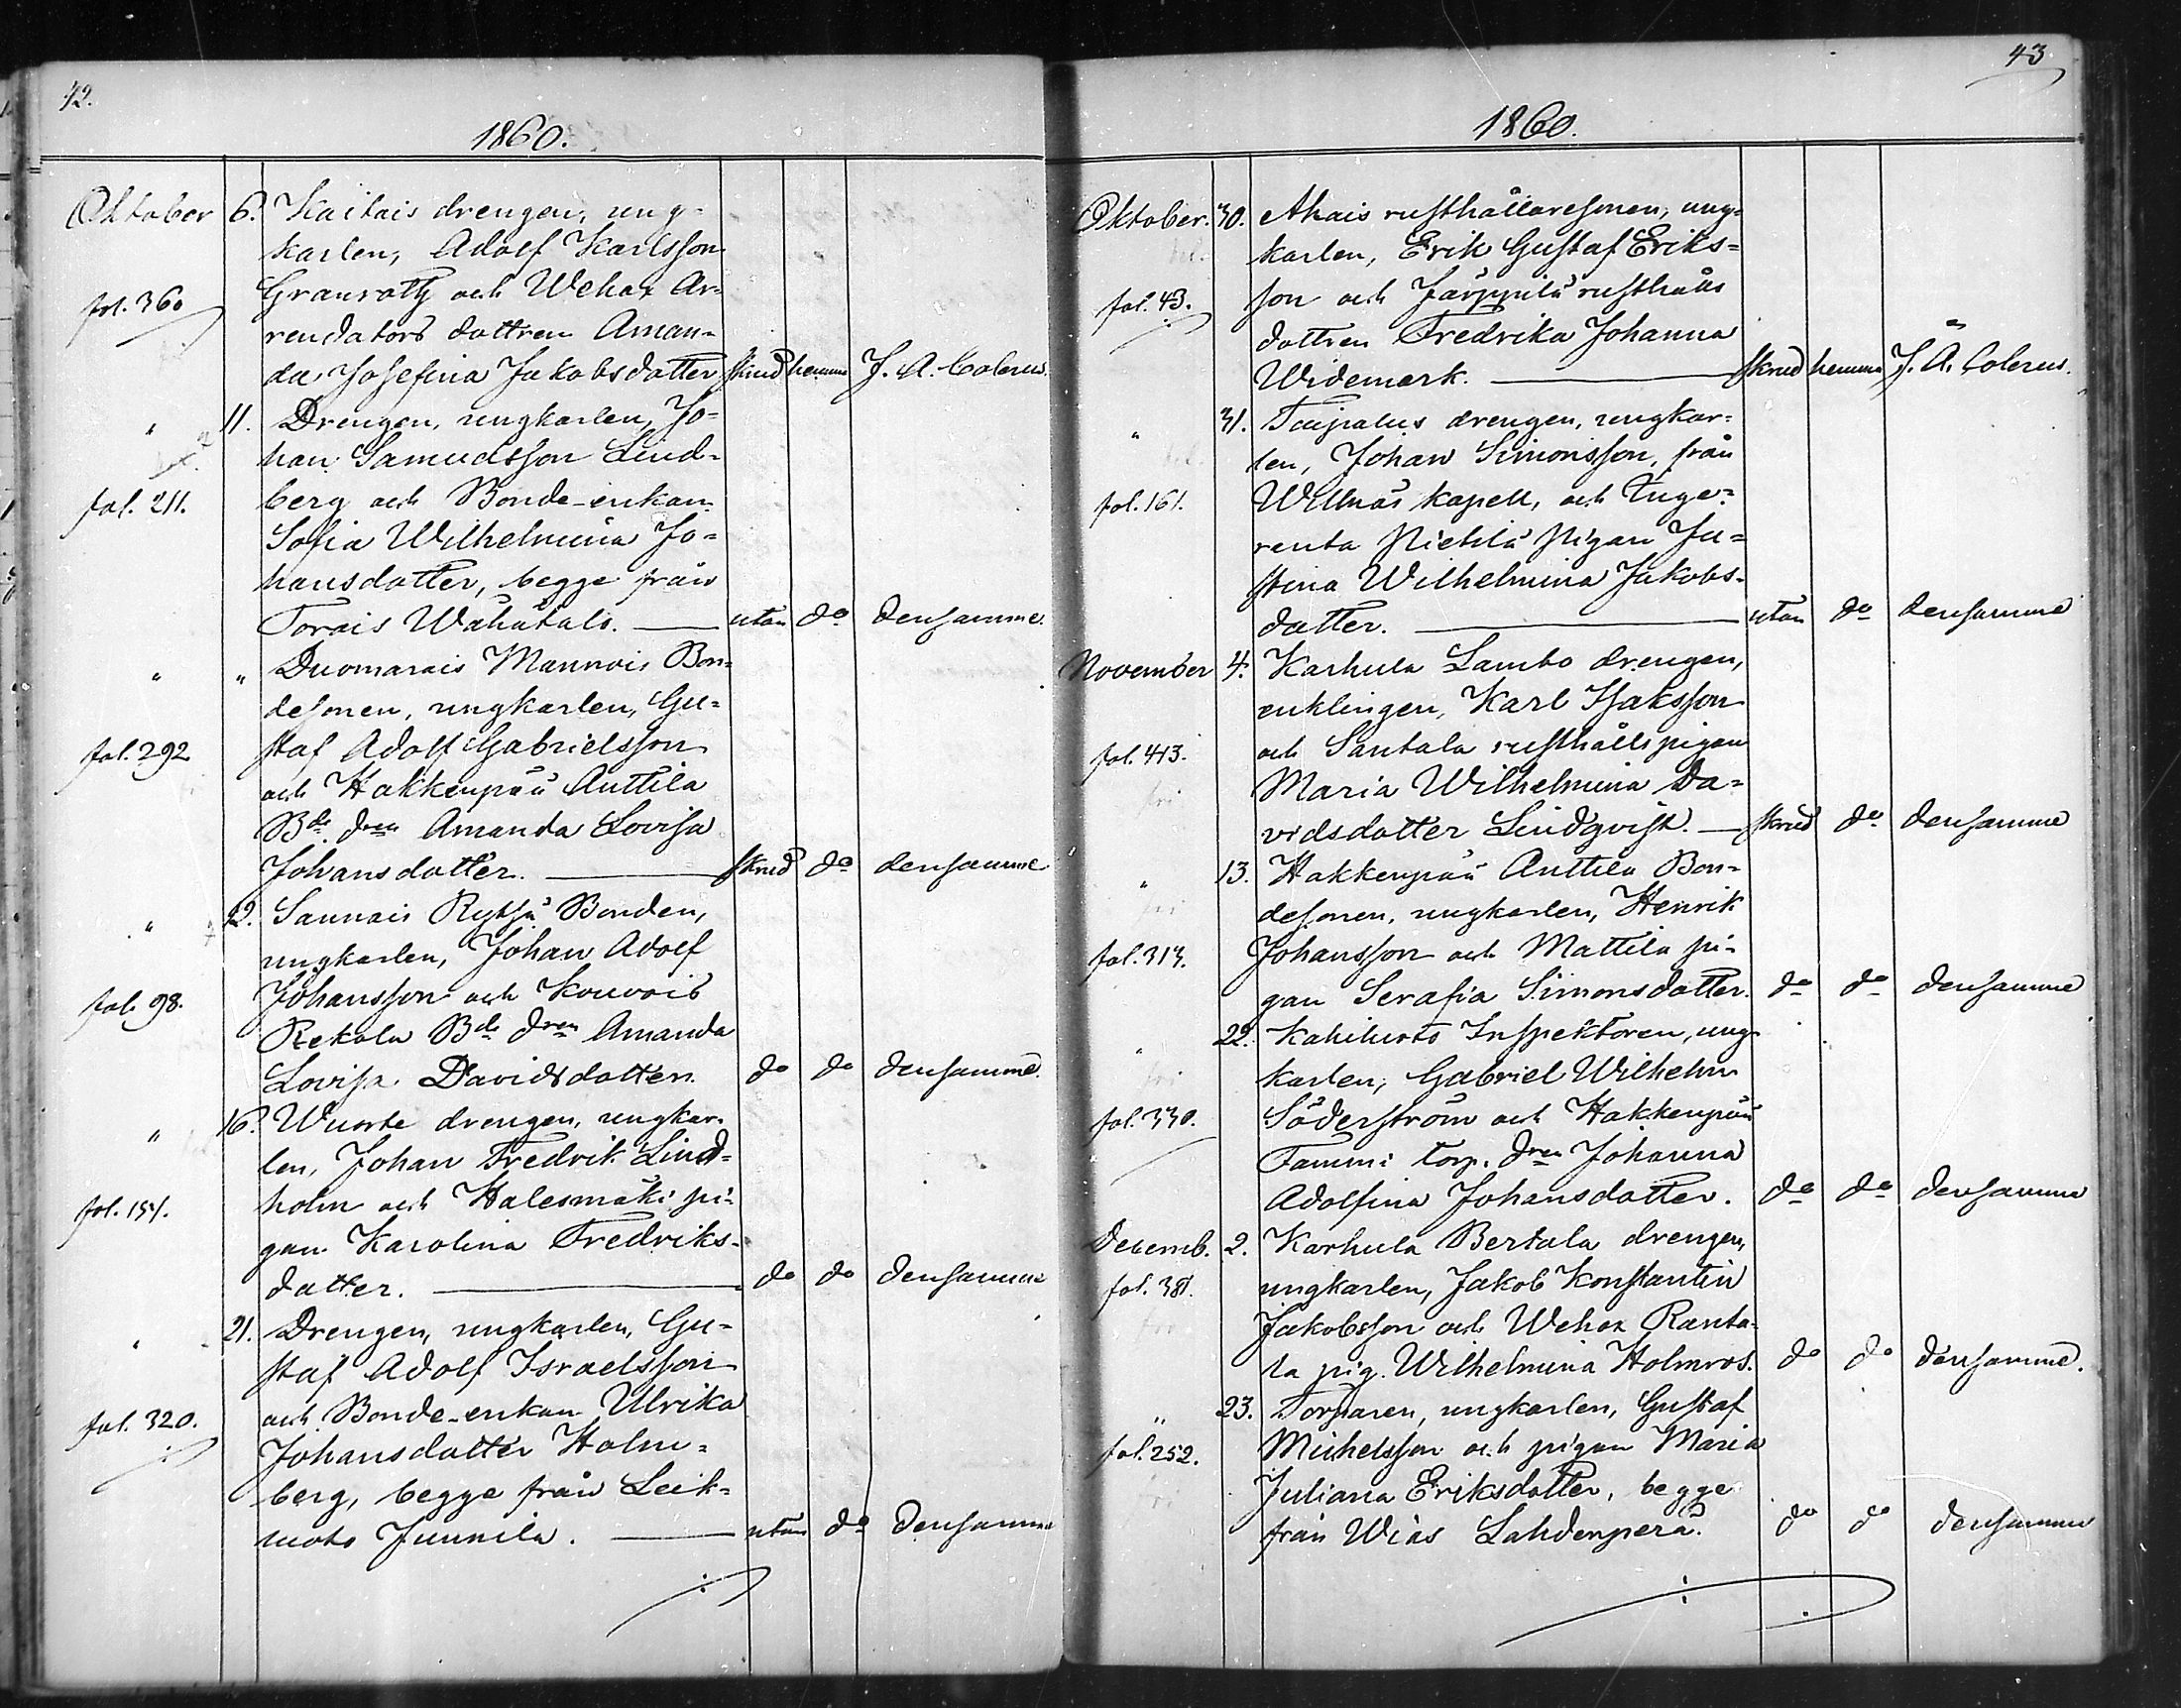 42.
1860.
Oktober 6. Kaitais drengen, ung-
karlen, Adolf Karlsson
fol. 360 Granroth och Wehax Ar-
rendators dottren Aman-
da Josefina Jakobsdotter skrud hemma J. A. Colerus.
" 11. Drengen, ungkarlen, Jo-
han Samuelsson Lind-
fol. 211. berg och Bonde-enkan
Sofia Wilhelmina Jo-
hansdotter, begge från
Torais Wähätalo. utan do densamme.
" " Duomarais Mannois Bon-
desonen, ungkarlen, Gu-
fol. 292 staf Adolf Gabrielsson
och Hakkenpää Anttila
Bde dren Amanda Lovisa
Johansdotter. skrud do densamme
" Sannais Bonden,
ungkarlen, Johan Adolf
fol. 98. Johansson och Kouvois
Rekola Bde dren Amanda
Lovisa Davidsdotter. do do densamme.
" 16. Wuorte drengen, ungkar-
len, Johan Fredrik Lind-
holm och Halesmäki pi-
gan Karolina Fredriks-
dotter. do do densamme
" 21. Drengen, ungkarlen, Gu-
staf Adolf Israelsson
fol. 320. och Bonde-enkan Ulrika
Johansdotter Holm-
berg, begge från Leik-
luoto Junnila. utan do densamme
43
1860.
Oktober. 30. Ahais rusthållaresonen, ung-
karlen, Erik Gustaf Eriks-
fol. 43. son och Järppilä rusthålls
dottren Fredrika Johanna
Widemark. skrud hemma J. A. Colerus.
" 31. Taipalus drengen, ungkar-
len, Johan Simonsson, från
fol. 161. Willnäs kapell, och Inge-
renta Pietilä pigan Ju-
stina Wilhelmina Jakobs-
dotter. utan do densamme
November 4. Karhula Lambo drengen,
enklingen, Karl Isaksson
fol. 413. och Santala rusthålls pigan
Maria Wilhelmina Da-
vidsdotter Lindqvist. skrud do densamme
" 13. Hakkenpää Anttila Bon-
desonen, ungkarlen, Henrik
fol. 313. Johansson och Mattila pi-
gan Serafia Simonsdotter. do do densamme
" 22. Kahiluoto Inspektoren, ung-
karlen, Gabriel Wilhelm
fol. 330. Söderström och Hakkenpää
Tammi torp. dren Johanna
Adolfina Johansdotter. do do densamme
Decemb. 2. Karhula Bertala drengen,
fol. 381. ungkarlen, Jakob Konstantin
Jakobsson och Wehax Ranta-
la pig. Wilhelmina Holmros. do do densamme.
" 23. Torparen, ungkarlen, Gustaf
fol. 252. Michelsson och pigan Maria
Juliana Eriksdotter, begge
från Wias Lahdenperä. do do densamme